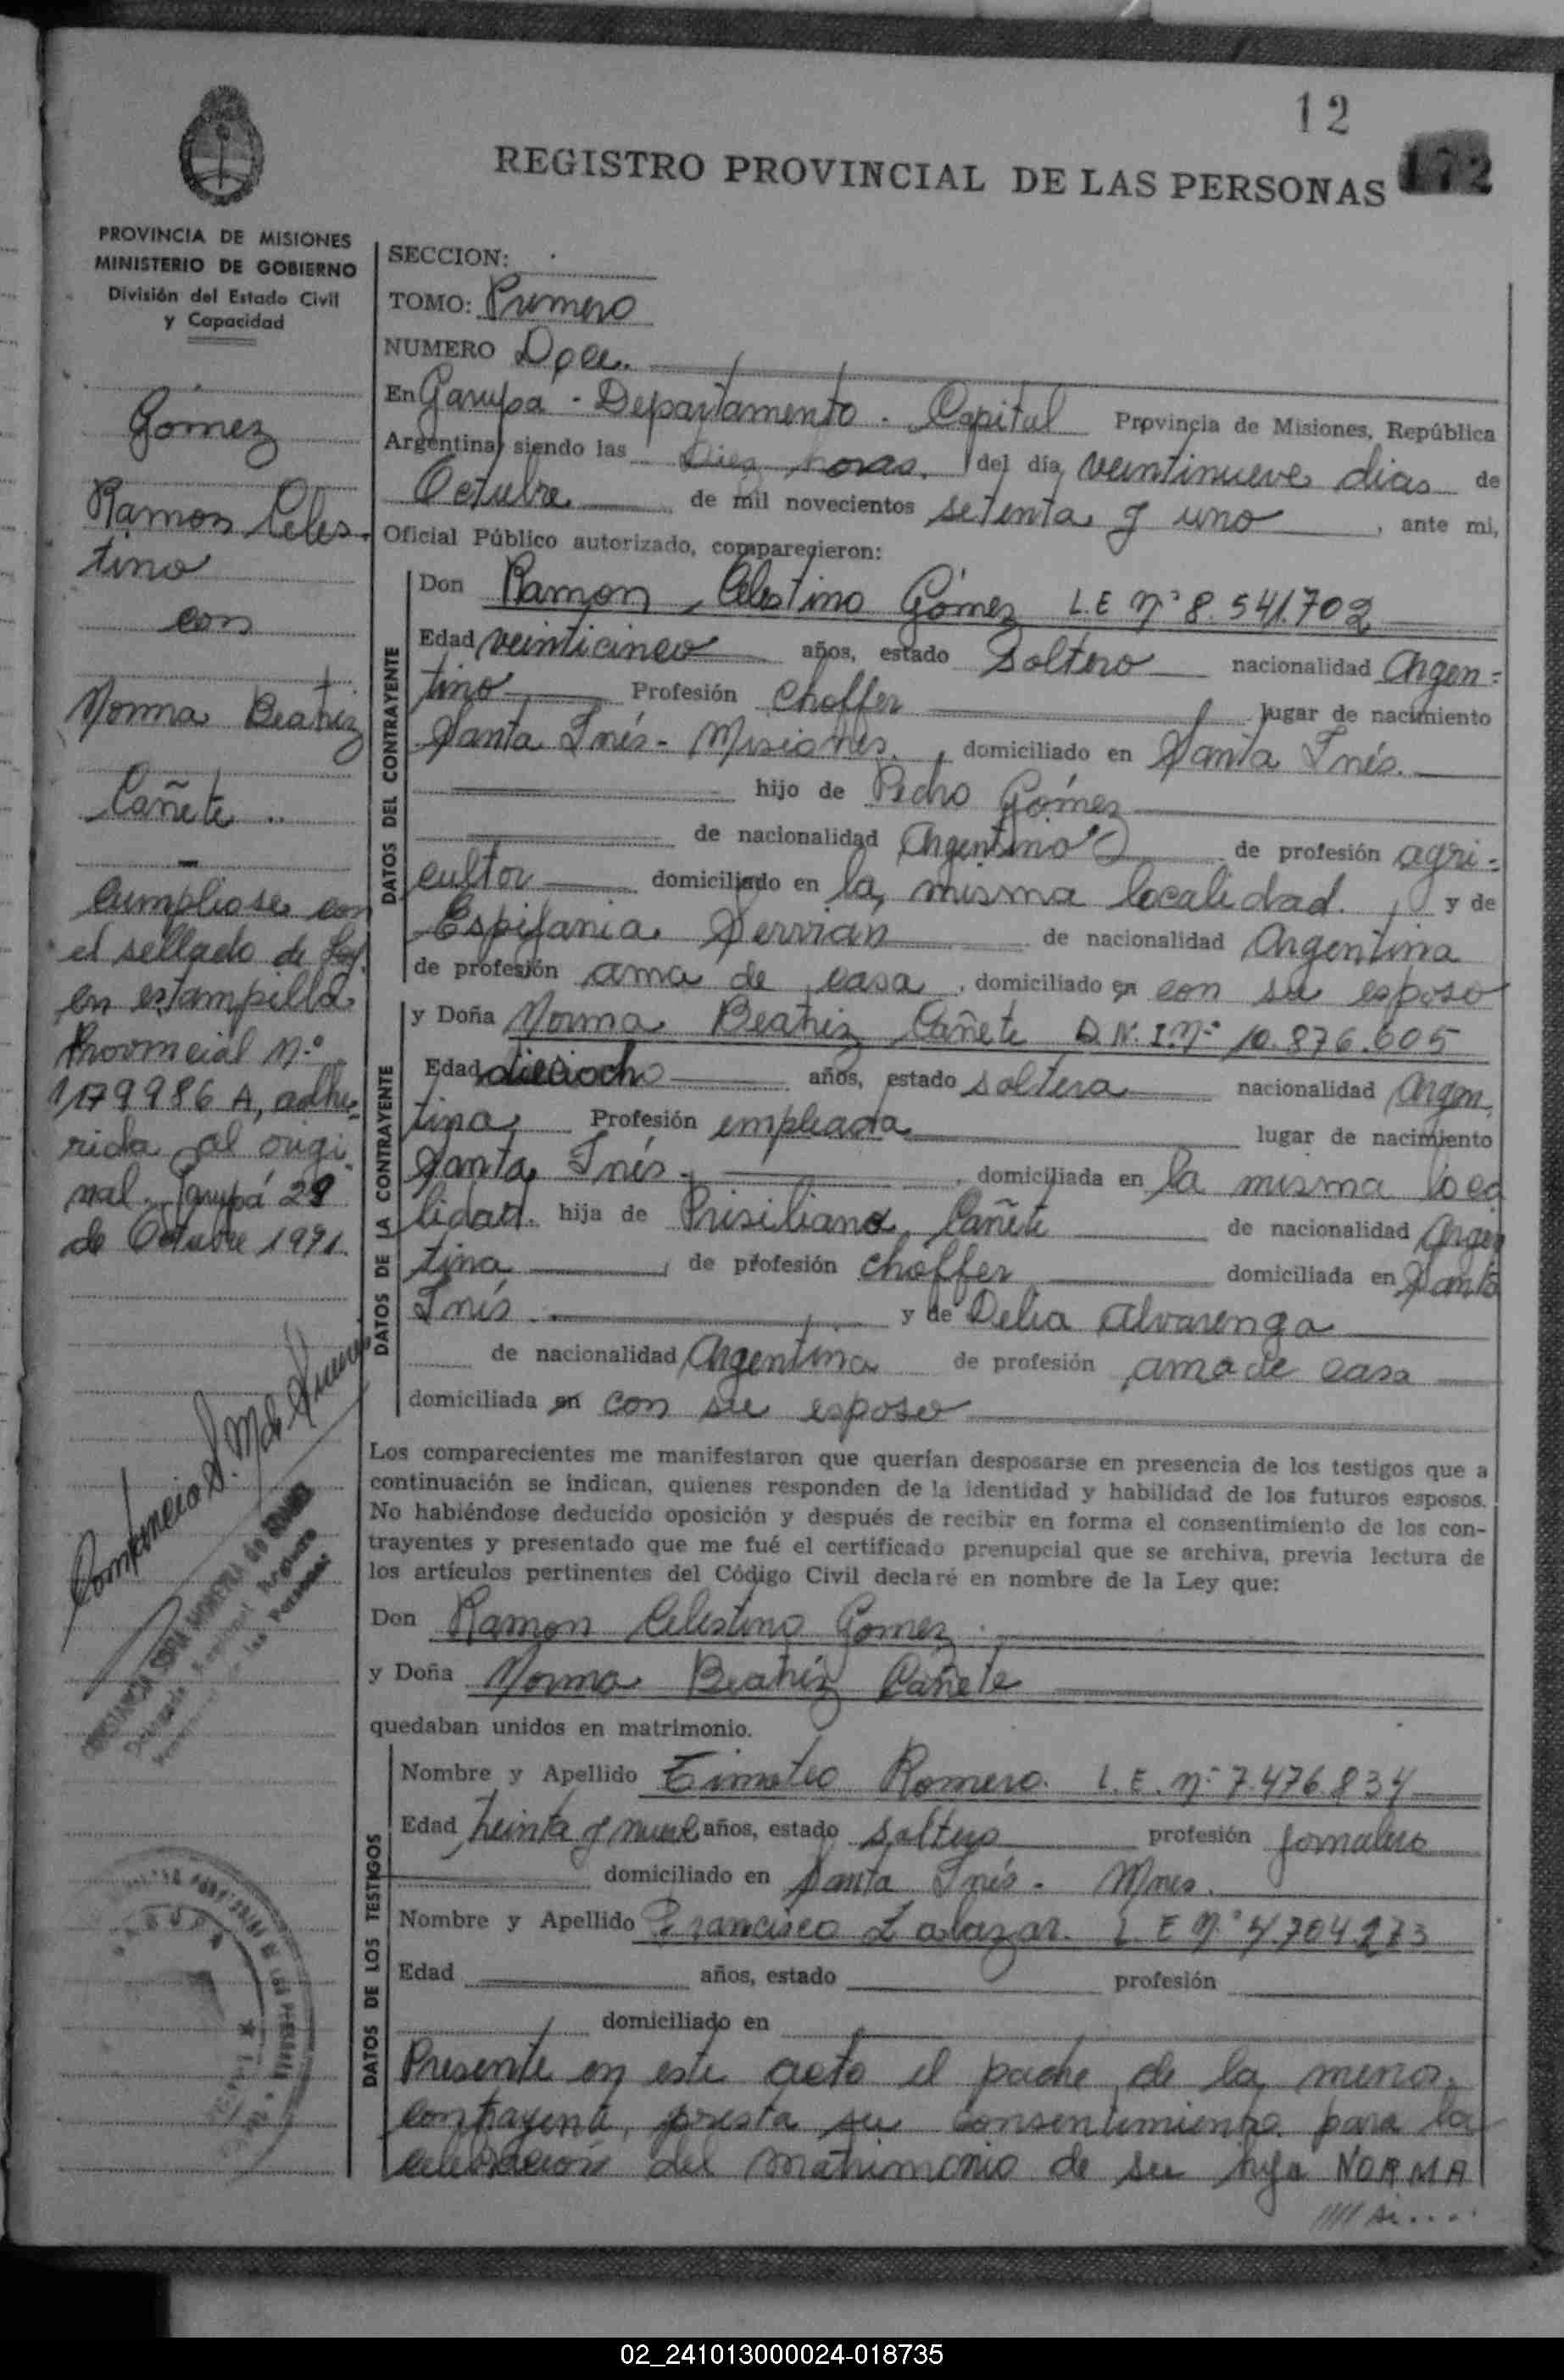 12
REGISTRO PROVINCIAL DE LAS PERSONAS
172
PROVINCIA DE MISIONES
MINISTERIO DE GOBIERNO
División del Estado Civil
y Capacidad
Gómez
Ramon Celes-
tino
con
Norma Beatriz
Cañete
Cumpliose con
el sellado de Ley
en estampilla
Provincial N.º
1179986 A, adhe-
rida al origi-
nal. Garupá 29
de Octubre 1971.
SECCION:
TOMO: Primero
NUMERO Doce.
En Garupa - Departamento - Capital Provincia de Misiones, República
Argentina, siendo las Diez horas. del día, veintinueve dias de
Octubre de mil novecientos setenta y uno, ante mi,
Oficial Público autorizado, comparecieron:
DATOS DEL CONTRAYENTE
Don Ramon Celestino Gómez L.E Nº 8.541.702
Edad veinticinco años, estado Soltero nacionalidad Argen=
tino Profesión Choffer lugar de nacimiento
Santa Inés - Misiones, domiciliado en Santa Inés.
hijo de Pedro Gómez
de nacionalidad Argentino de profesión agri=
cultor domiciliado en la misma localidad. y de
Espifania Servián de nacionalidad Argentina
de profesión ama de casa, domiciliado en con su esposo
DATOS DE LA CONTRAYENTE
y Doña Norma Beatriz Cañete D.N.I.Nº 10.876.605
Edad dieciocho años, estado soltera nacionalidad Argen
tina, Profesión empleada lugar de nacimiento
Santa Inés. domiciliada en la misma loca
lidad. hija de Prisiliano Cañete de nacionalidad Argen
tina, de profesión choffer domiciliada en Santa
Inés y de Delia Alvarenga
de nacionalidad Argentina de profesión ama de casa
domiciliada en con su esposo
Los comparecientes me manifestaron que querían desposarse en presencia de los testigos que a
continuación se indican, quienes responden de la identidad y habilidad de los futuros esposos.
No habiéndose deducido oposición y después de recibir en forma el consentimiento de los con-
trayentes y presentado que me fué el certificado prenupcial que se archiva, previa lectura de
los artículos pertinentes del Código Civil declaré en nombre de la Ley que:
Don Ramon Celestino Gomez
y Doña Norma Beatriz Cañete
quedaban unidos en matrimonio.
DATOS DE LOS TESTIGOS
Nombre y Apellido Timoteo Romero. L.E. Nº 7.476.834
Edad treinta y nueve años, estado soltero profesión jornalero
domiciliado en Santa Inés - Mnes.
Nombre y Apellido Francisco Zalazar. L.E Nº 4.704.273
Edad años, estado profesión
domiciliado en
Presente en este acto el padre de la menor
contrayente, presta su consentimiento para la
celebración del matrimonio de su hija NORMA
//// si....
02_241013000024-018735